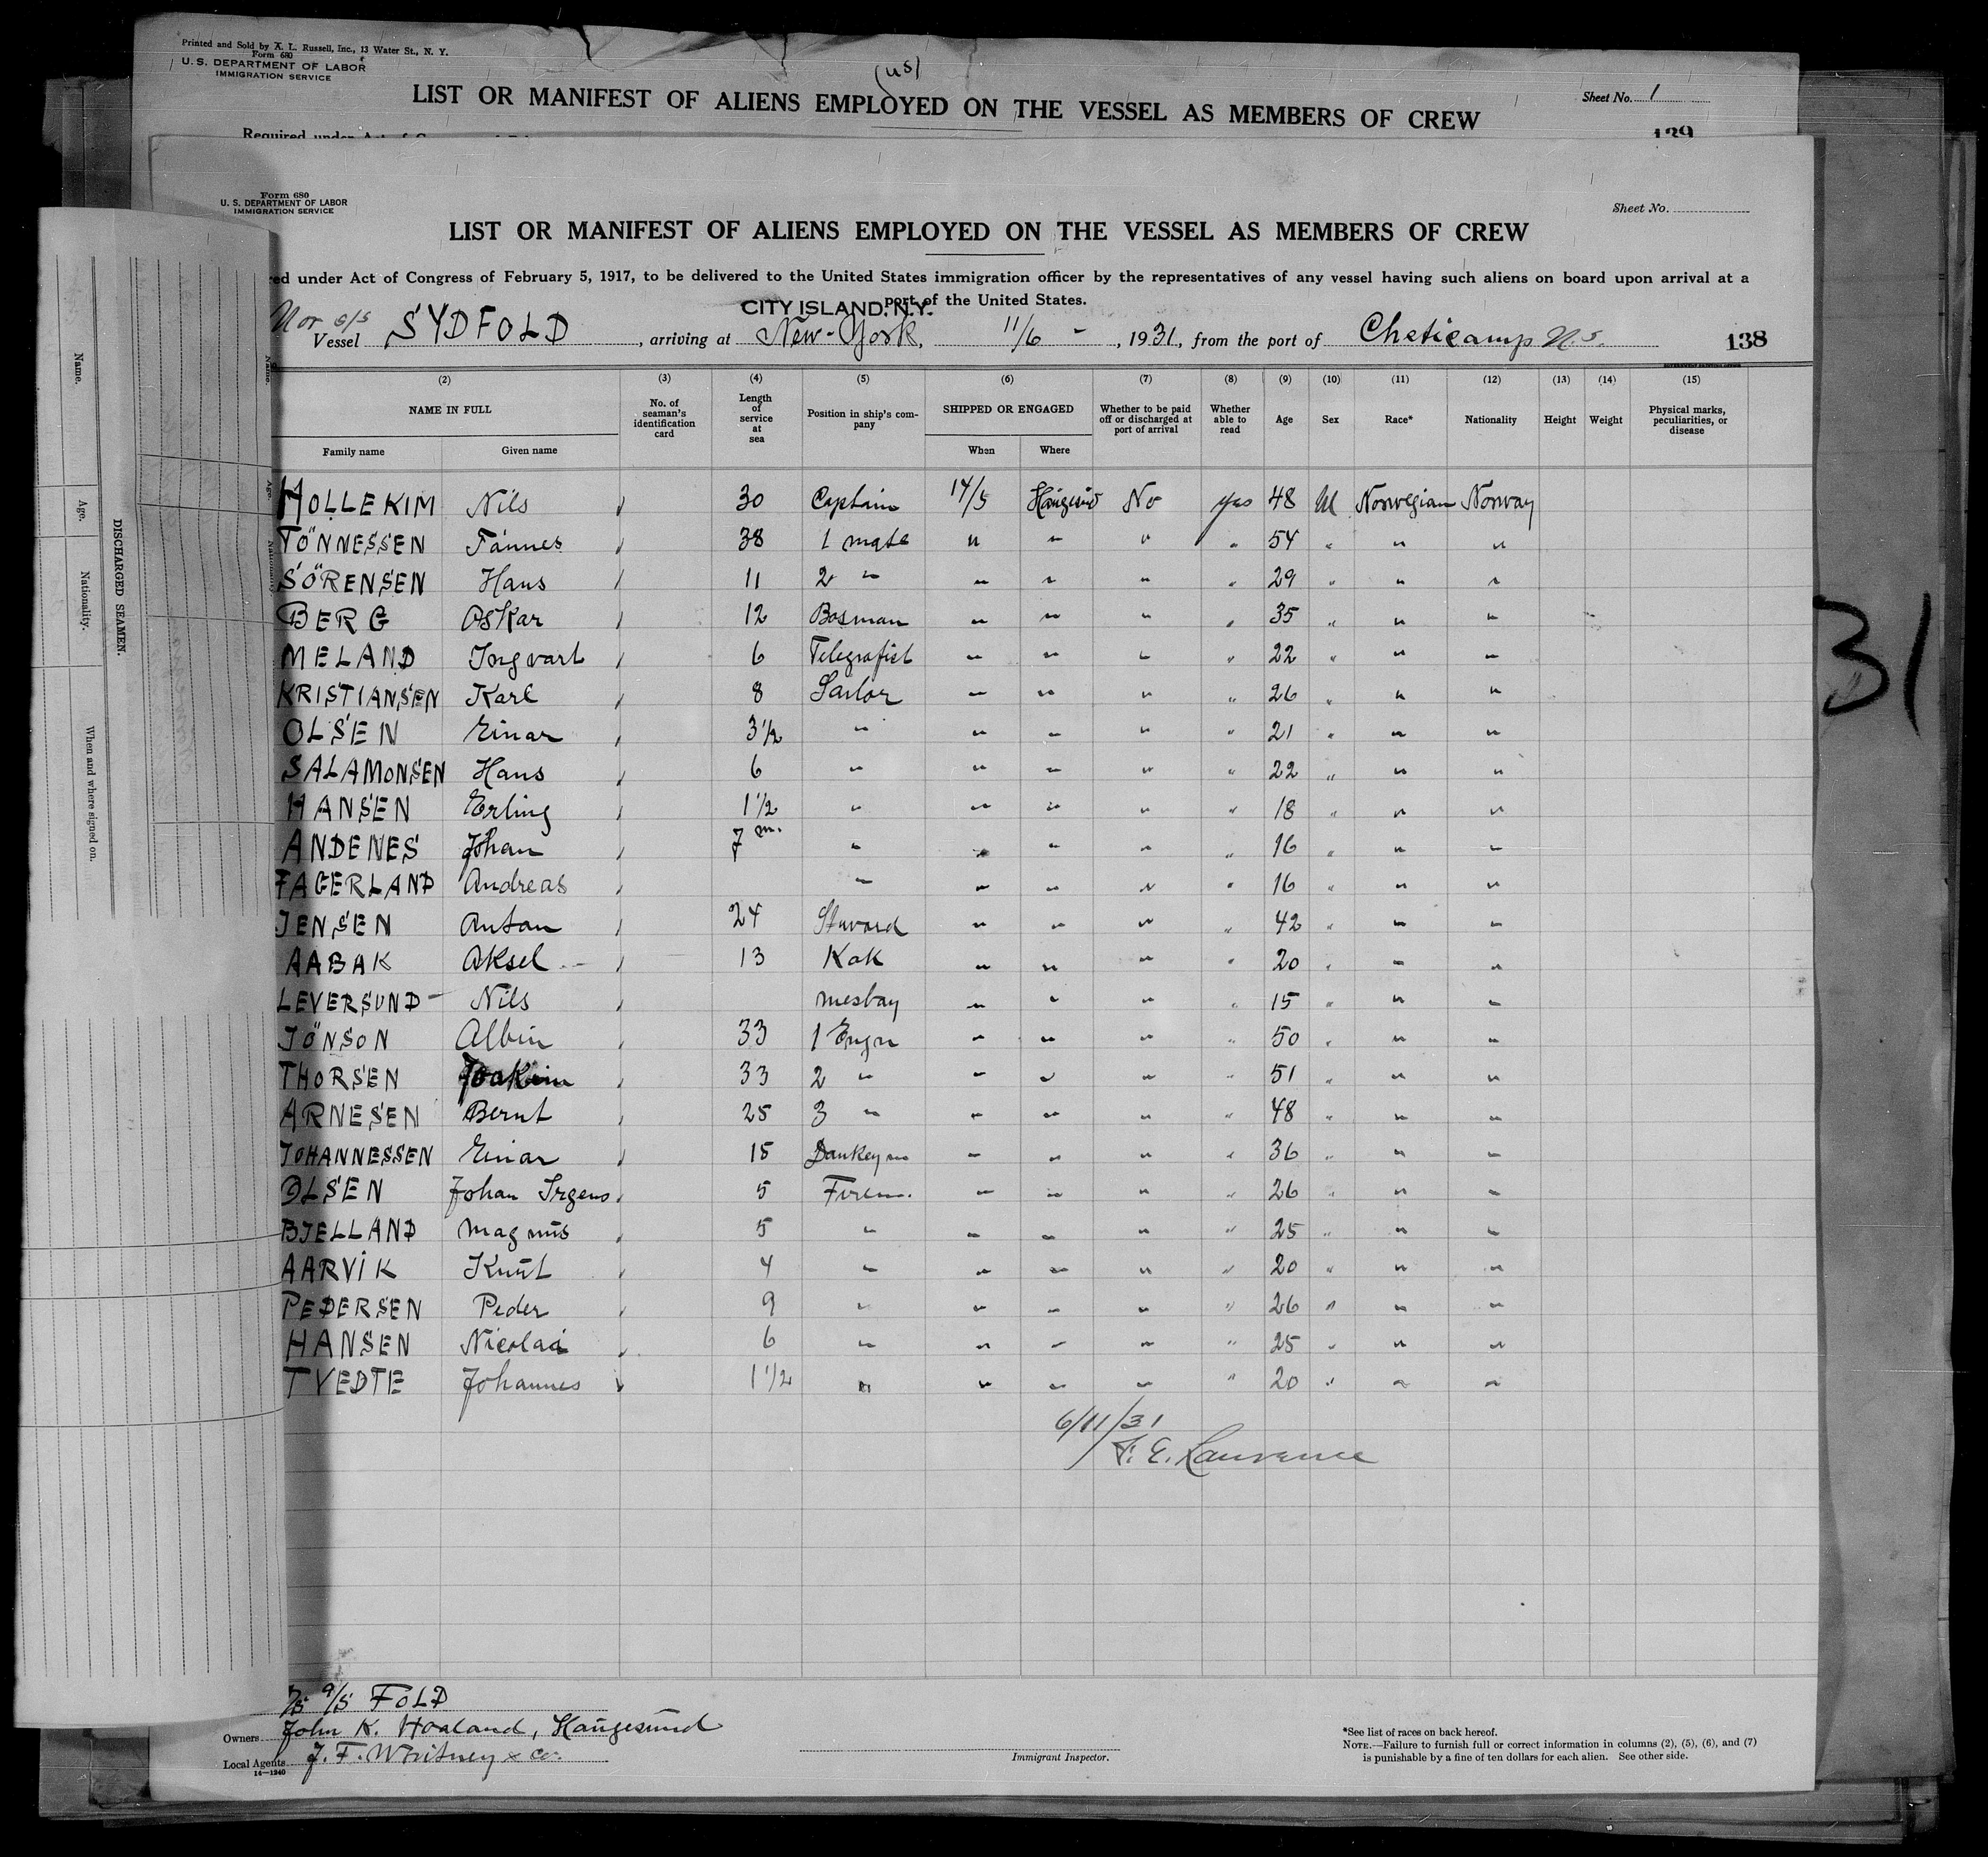 Printed and Sold by A. L. Russell, Inc., 13 Water St., N. Y.
Form 680
U. S. DEPARTMENT OF LABOR
IMMIGRATION SERVICE
(us)
LIST OR MANIFEST OF ALIENS EMPLOYED ON THE VESSEL AS MEMBERS OF CREW
Sheet No. 1
139
Form 680
U. S. DEPARTMENT OF LABOR
IMMIGRATION SERVICE
Sheet No.
LIST OR MANIFEST OF ALIENS EMPLOYED ON THE VESSEL AS MEMBERS OF CREW
red under Act of Congress of February 5, 1917, to be delivered to the United States immigration officer by the representatives of any vessel having such aliens on board upon arrival at a
port of the United States.
CITY ISLAND. N.Y.
Nor s/s
Vessel SYDFOLD, arriving at New-York, 11/6 -, 1931, from the port of Cheticamp N.S. 138
(2) (3) (4) (5) (6) (7) (8) (9) (10) (11) (12) (13) (14) (15)
NAME IN FULL No. of seaman's identification card Length of service at sea Position in ship's company SHIPPED OR ENGAGED Whether to be paid off or discharged at port of arrival Whether able to read Age Sex Race* Nationality Height Weight Physical marks, peculiarities, or disease
Family name Given name When Where
HOLLEKIM Nils 30 Captain 14/5 Haugesund No yes 48 M Norwegian Norway
TÖNNESSEN Tönnes 38 1 mate " " " " 54 " " "
SÖRENSEN Hans 11 2 " " " " " 29 " " "
BERG Oskar 12 Bosman " " " " 35 " " "
MELAND Ingvart 6 Telegrafist " " " " 22 " " "
KRISTIANSEN Karl 8 Sailor " " " " 26 " " "
OLSEN Einar 3½ " " " " " 21 " " "
SALAMONSEN Hans 6 " " " " " 22 " " "
HANSEN Erling 1½ " " " " " 18 " " "
ANDENES Johan 7 m. " " " " " 16 " " "
FAGERLAND Andreas " " " " " 16 " " "
JENSEN Anton 24 Stuvard " " " " 42 " " "
AABAK Aksel 13 Kok " " " " 20 " " "
LEVERSUND Nils mesboy " " " " 15 " " "
JÖNSON Albin 33 1 Engn " " " " 50 " " "
THORSEN Joakim 33 2 " " " " " 51 " " "
ARNESEN Bernt 25 3 " " " " " 48 " " "
JOHANNESSEN Einar 15 Donkeym " " " " 36 " " "
OLSEN Johan Irgens 5 Firem. " " " " 26 " " "
BJELLAND Magnus 5 " " " " " 25 " " "
AARVIK Knut 4 " " " " " 20 " " "
PEDERSEN Peder 9 " " " " " 26 " " "
HANSEN Nicolai 6 " " " " " 25 " " "
TVEDTE Johannes 1½ " " " " " 20 " " "
6/11/31
F. E. Lawrence
FOLD
Owners John K. Haaland, Haugesund
Local Agents J. F. Whitney & Co.
14—1240
Immigrant Inspector.
*See list of races on back hereof.
NOTE.—Failure to furnish full or correct information in columns (2), (5), (6), and (7)
is punishable by a fine of ten dollars for each alien. See other side.
DISCHARGED SEAMEN.
Name.
Age.
Nationality.
When and where signed on.
31